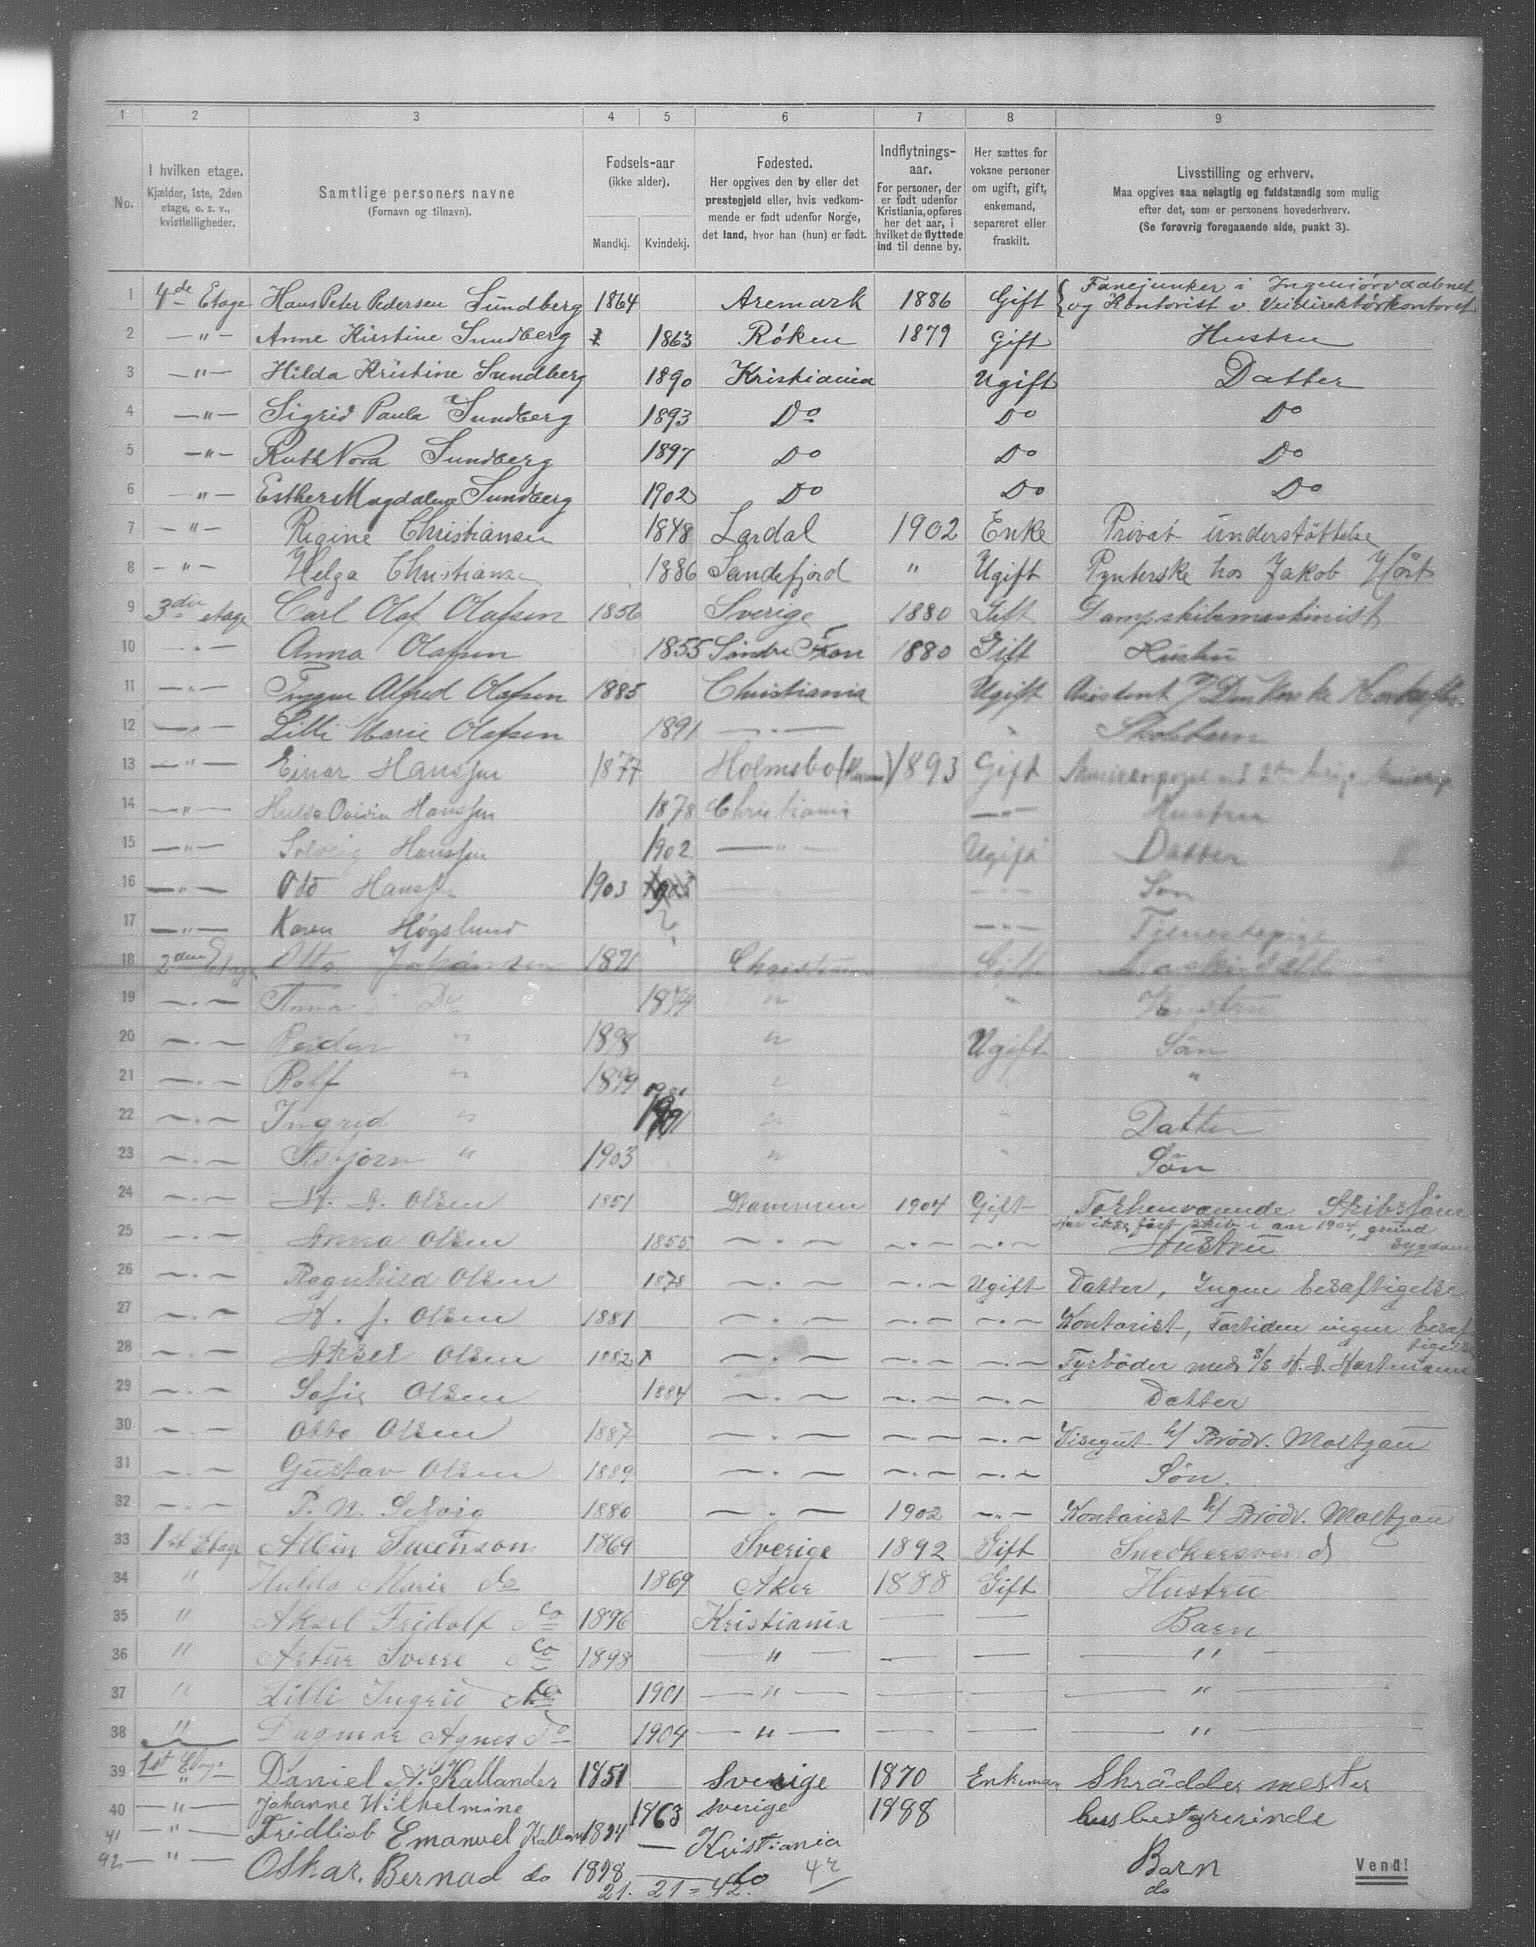 1 2 3 4 5 6 7 8 9
No.
I hvilken etage.
Kjælder, 1ste, 2den
etage, o. s. v.,
kvistleiligheder.
Samtlige personers navne
(Fornavn og tilnavn).
Fødsels-aar
(ikke alder).
Mandkj. Kvindekj.
Fødested.
Her opgives den by eller det
prestegjeld eller, hvis vedkom-
mende er født udenfor Norge,
det land, hvor han (hun) er født.
Indflytnings-
aar.
For personer, der
er født udenfor
Kristiania, opføres
her det aar, i
hvilket de flyttede
ind til denne by.
Her sættes for
voksne personer
om ugift, gift,
enkemand,
separeret eller
fraskilt.
Livsstilling og erhverv.
Maa opgives saa nøiagtig og fuldstændig som mulig
efter det, som er personens hovederhverv.
(Se forøvrig foregaaende side, punkt 3).
1 4de Etage Hans Peter Pedersen Sundberg 1864 Aremark 1886 Gift Fanejunker i Ingeniørvaabnet
og Kontorist v. Veidirektørkontoret
2 — " — Anne Kirstine Sundberg 1863 Røken 1879 Gift Hustru
3 — " — Hilda Kristine Sundberg 1890 Kristiania Ugift Datter
4 — " — Sigrid Paula Sundberg 1893 Do Do Do
5 — " — Ruth Nora Sundberg 1897 Do Do Do
6 — " — Esther Magdalene Sundberg 1902 Do Do Do
7 — " — Rigine Christiansen 1848 Lardal 1902 Enke Privat understøttelse
8 — " — Helga Christianse 1886 Sandefjord " Ugift Pynterske hos Jakob
9 3die etage Carl Olaf Olafsen 1856 Sverige 1880 Gift Dampskibsmaskinist
10 — " — Anna Olafsen 1855 Søndre Fron 1880 Gift Hustru
11 — " — Trygve Alfred Olafsen 1885 Christiania Ugift Assistent Den Norske
12 — " — Lilli Marie Olafsen 1891 — " — "
13 — " — Einar Hanssen 1877 Holmsbo 1893 Gift
14 — " — Hulda Hanssen 1878 Christiania — " — Hustru
15 — " — Solveig Hanssen 1902 — " — Ugift Datter
16 — " — Odd Hanssen 1903 — " — Søn
17 — " — Karen Høgslund — " — Tjenestepige
18 2den Etage Otto Johansen 1871 Christiania Gift
19 — " — Anna Do 1874 " " Hustru
20 — " — Reidar " 1898 " Ugift Søn
21 — " — Rolf " 1899 " "
22 — " — Ingrid " 1901 " " Datter
23 — " — Asbjørn " 1903 " " Søn
24 — " — A. A. Olsen 1851 Drammen 1904 Gift Forhenværende Skibsfører
Har ikke ført skib i aar 1904, grund
sygdom
25 — " — Anna Olsen 1855 — " — — " — — " — Hustru
26 — " — Ragnhild Olsen 1878 — " — — " — Ugift Datter, Ingen besaftigelse
27 — " — A. J. Olsen 1881 — " — — " — — " — Kontorist, Fortiden ingen besaf-
tigelse
28 — " — Aksel Olsen 1882 — " — — " — — " — Fyrbøder med S/S A. A. Hartmann
29 — " — Sofie Olsen 1884 — " — — " — — " — Datter
30 — " — Otto Olsen 1887 — " — — " — — " — Visegut h/ Brødr. Moltzau
31 — " — Gustav Olsen 1889 — " — — " — — " — Søn.
32 — " — P. N. Selvig 1880 — " — 1902 — " — Kontorist h/ Brødr. Moltzau
33 1st Etage Albin Swenson 1869 Sverige 1892 Gift Snedkersvend
34 " Hulda Marie do 1869 Aker 1888 Gift Hustru
35 " Aksel Fridolf do 1896 Kristiania — — Barn
36 " Artur Sverre do 1898 — " — — — — " —
37 " Lilli Ingrid do 1901 — " — — — — " —
38 " Dagmar Agnes do 1904 — " — — — — " —
39 1st Etage " Daniel A. Kallander 1851 Sverige 1870 Enkeman Skrädder mester
40 — " — Johanne Wilhelmine 1863 Sverige 1888 husbestyrerinde
41 — " — Fridtiob Emanuel Kallan 1894 — Kristiania Barn
42 — " — Oskar. Bernad do 1898 — do do
21. 21 = 42. 42
Vend!